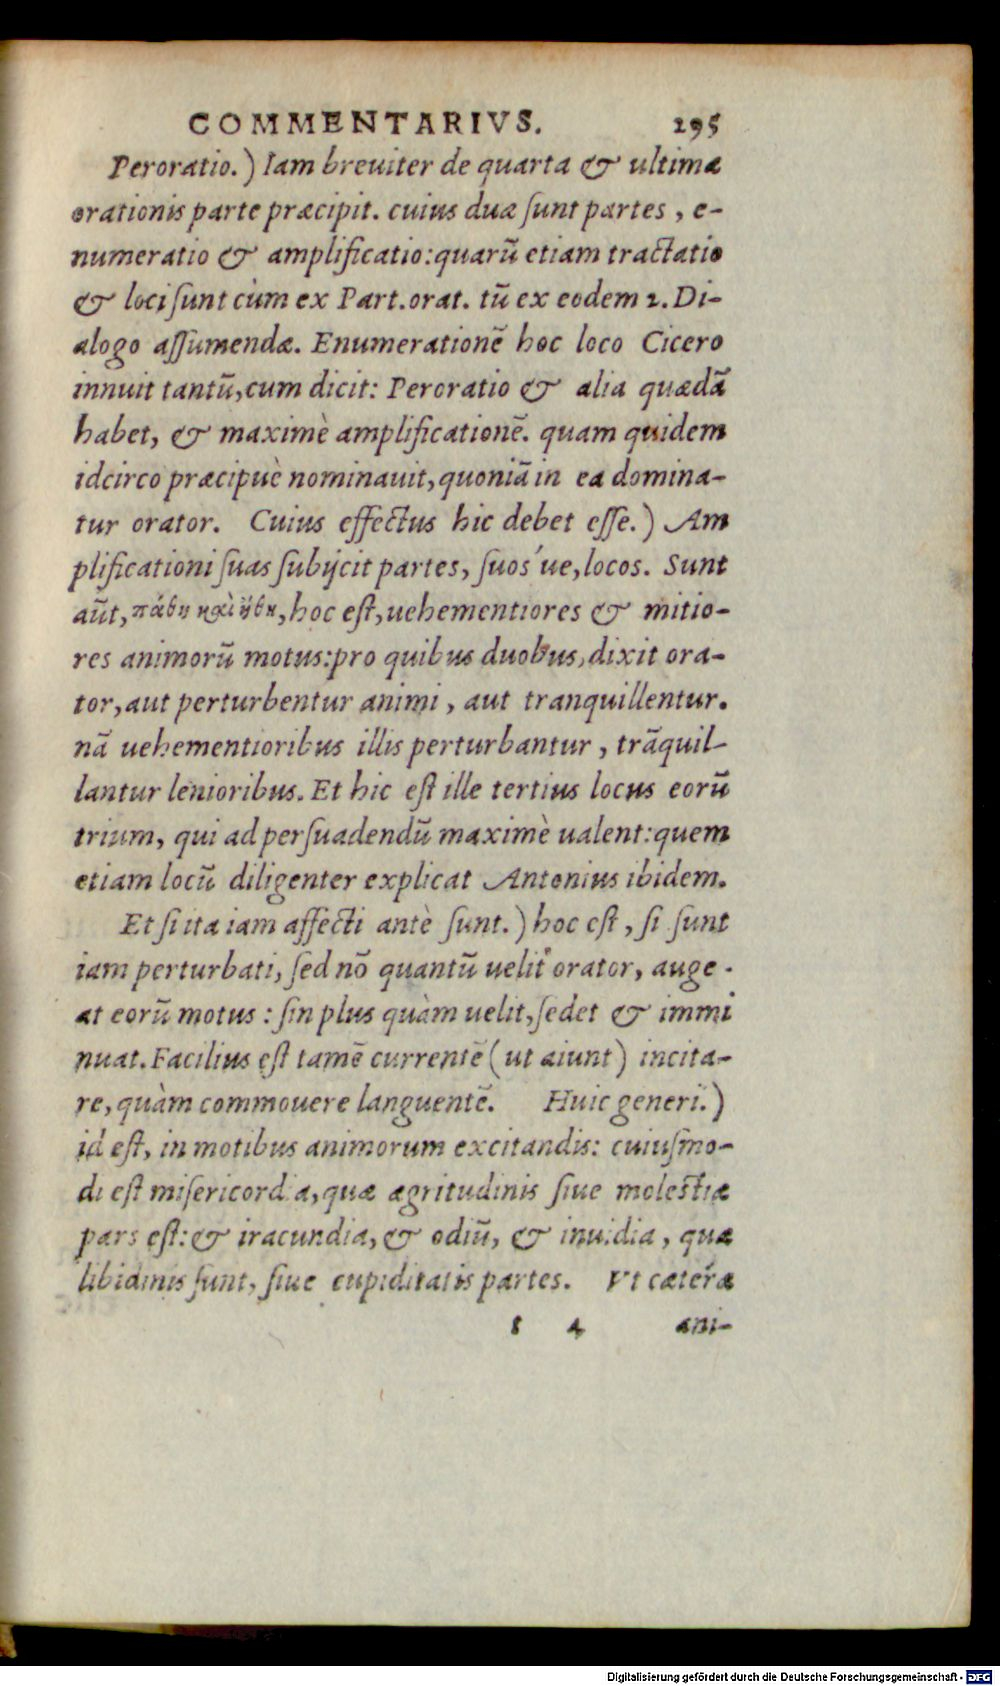 COMMENTARIVS. 295
Peroratio.) Iam breuiter de quarta & ultima
orationis parte præcipit. cuius duæ ſunt partes, e-
numeratio & amplificatio: quarũ etiam tractatio
& loci ſunt cùm ex Part. orat. tũ ex eodem 2. Di-
alogo aſſumendæ. Enumerationẽ hoc loco Cicero
innuit tantũ, cum dicit: Peroratio & alia quædã
habet, & maximè amplificationẽ. quam quidem
idcirco præcipuè nominauit, quoniã in ea domina-
tur orator. Cuius effectus hic debet eſſe.) Am
plificationi ſuas ſubijcit partes, ſuos´ue, locos. Sunt
aũt, πάθη καὶ ἤθη, hoc eſt, uehementiores & mitio-
res animorũ motus: pro quibus duobus, dixit ora-
tor, aut perturbentur animi, aut tranquillentur.
nã uehementioribus illis perturbantur, trãquil-
lantur lenioribus. Et hic eſt ille tertius locus eorũ
trium, qui ad perſuadendũ maximè ualent: quem
etiam locũ diligenter explicat Antonius ibidem.
Et ſi ita iam affecti antè ſunt.) hoc eſt, ſi ſunt
iam perturbati, ſed nõ quantũ uelit orator, auge-
at eorũ motus: ſin plus quàm uelit, ſedet & immi
nuat. Facilius eſt tamẽ currentẽ (ut aiunt) incita-
re, quàm commouere languentẽ. Huic generi.)
id eſt, in motibus animorum excitandis: cuiuſmo-
di eſt miſericordia, quæ ægritudinis ſiue moleſtiæ
pars eſt: & iracundia, & odiũ, & inuidia, quæ
libidinis ſunt, ſiue cupiditatis partes. Vt cætera
s 4 ani-
Digitalisierung gefördert durch die Deutsche Forschungsgemeinschaft - DFG